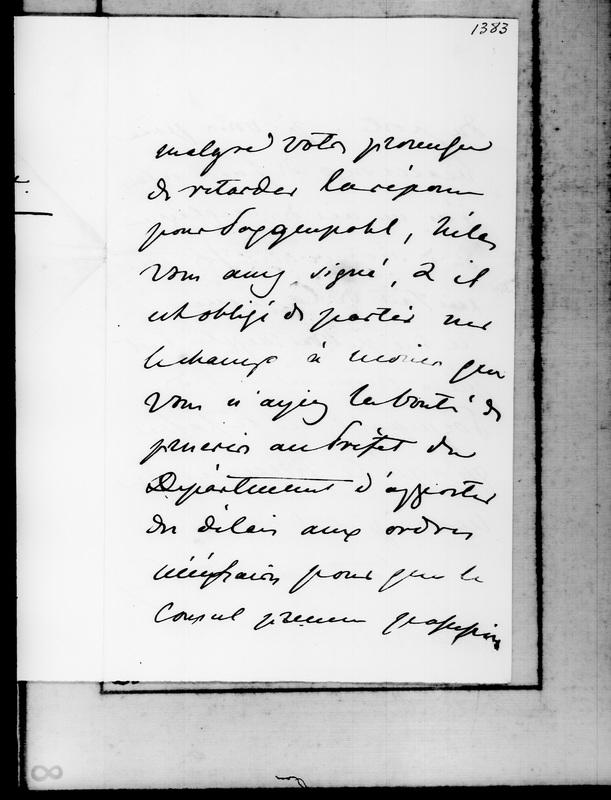 1383
malgré votre promesse
de retarder la réponse
pour Poggenpohl, hélas
vous avez signé, & il
est obligé de partir sur
le champ à moins que
vous n'ayiez la bonté de
prescrire au Préfet du
Département d'apporter
du délais aux ordres
nécéssaires pour que le
Consul prenne possession